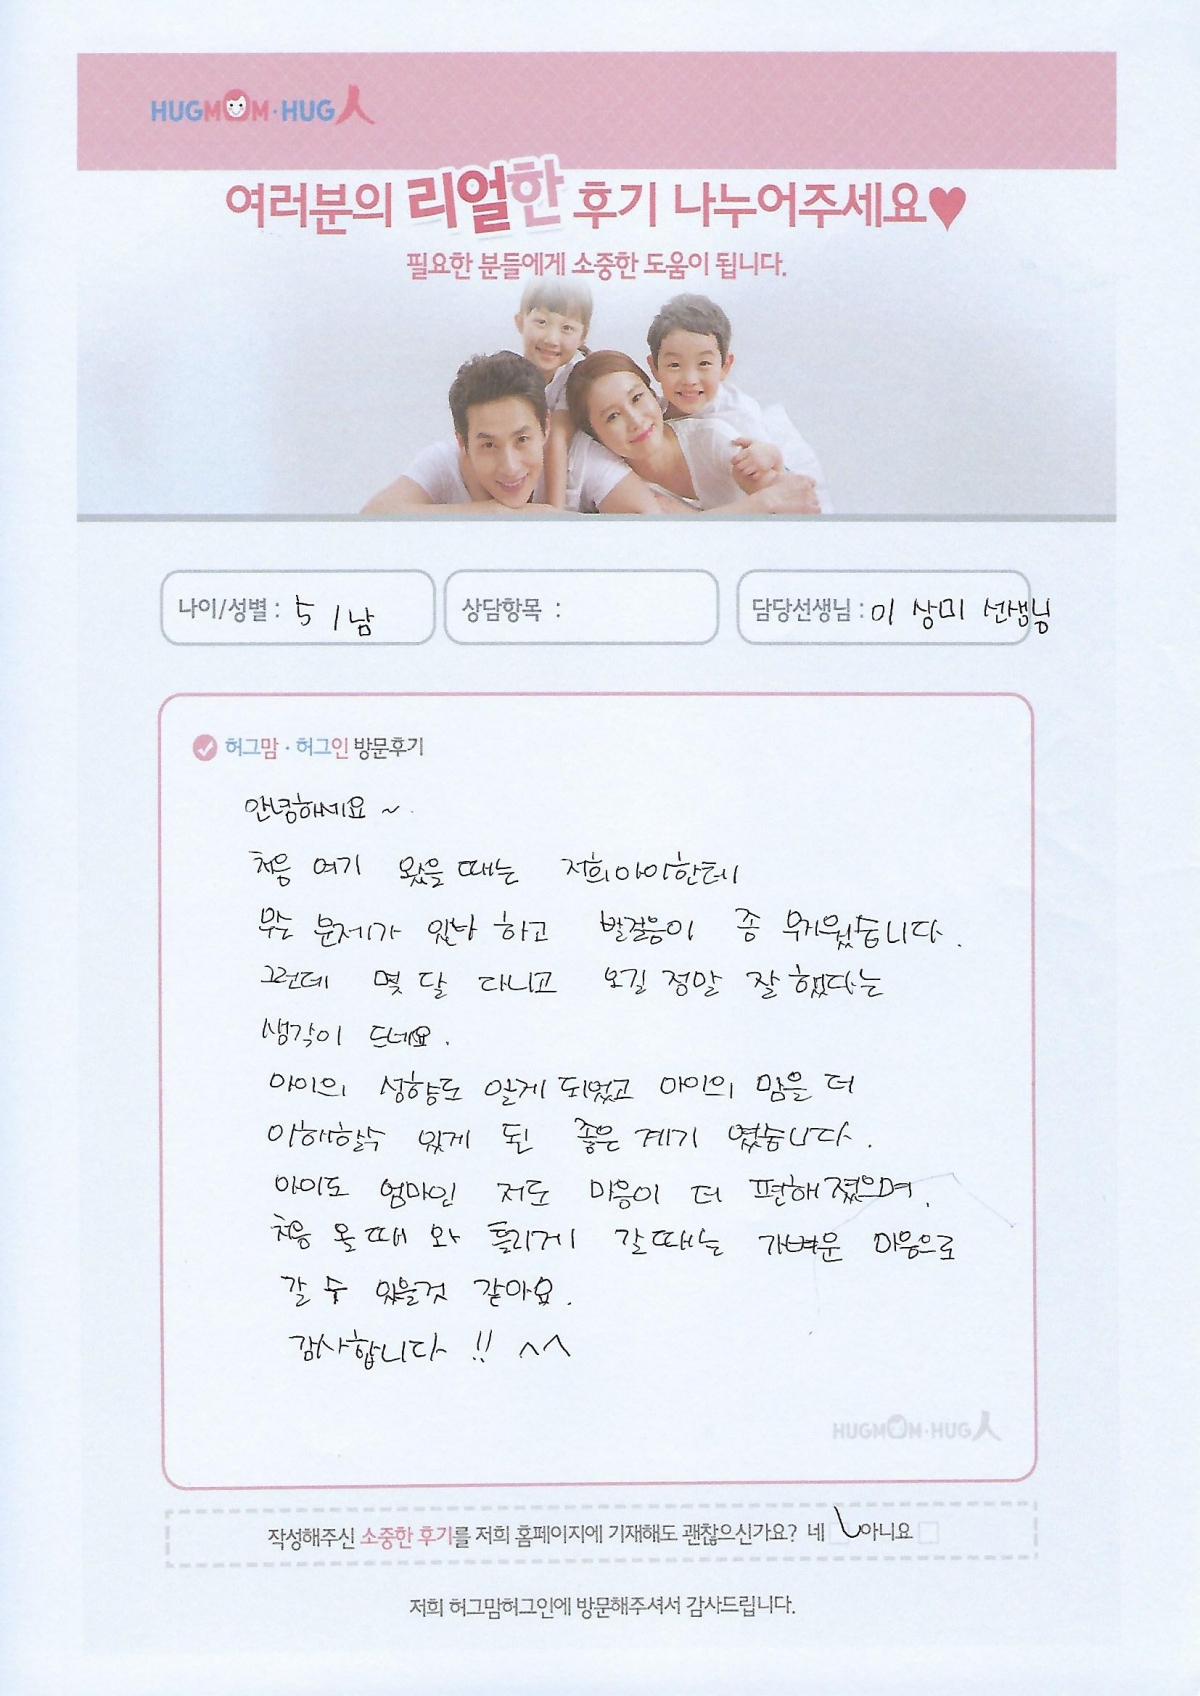 HUGMOM·HUG人
여러분의 리얼한 후기 나누어주세요♥
필요한 분들에게 소중한 도움이 됩니다.
나이/성별 : 5 / 남
상담항목 :
담당선생님 : 이 상미 선생님
허그맘 · 허그인 방문후기
안녕하세요 ~
처음 여기 왔을 때는 저희아이한테
무슨 문제가 있나 하고 발걸음이 좀 무거웠습니다.
그런데 몇 달 다니고 오길 정말 잘 했다는
생각이 드네요.
아이의 성향도 알게 되었고 아이의 맘을 더
이해할수 있게 된 좋은 계기 였습니다.
아이도 엄마인 저도 마음이 더 편해졌으며,
처음 올때 와 틀리게 갈때는 가벼운 마음으로
갈 수 있을것 같아요.
감사합니다 !! ^^
HUGMOM·HUG人
작성해주신 소중한 후기를 저희 홈페이지에 기재해도 괜찮으신가요? 네 아니요
저희 허그맘허그인에 방문해주셔서 감사드립니다.